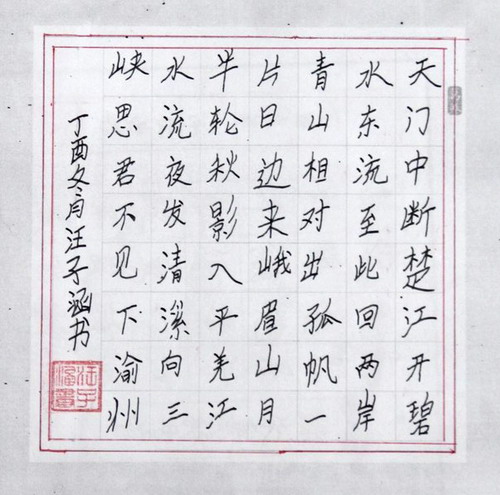 天门中断楚江开碧
水东流至此回两岸
青山相对出孤帆一
片日边来峨眉山月
半轮秋影入平羌江
水流夜发清溪向三
峡思君不见下渝州
丁酉冬月汪子涵书
汪子
涵書